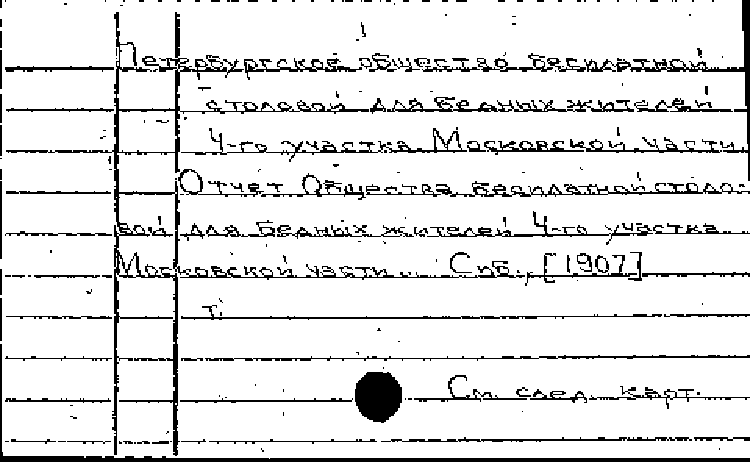 Петербургское общество бесплатной
столовой для бедных жителей
4-го участка Московской части.
Отчет Общества бесплатной столо-
вой для бедных жителей 4-го участка
Московской части... Спб., [1907]
т.
См. след. карт.